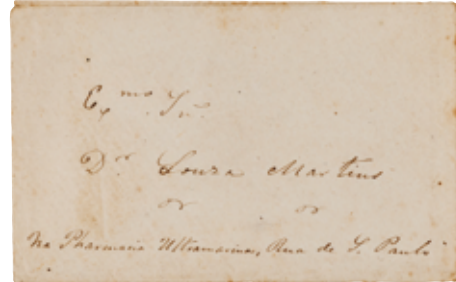 Ex.mo Snr.
Dor Souza Martins
Na Pharmacia Ultramarina, Rua de S. Paulo